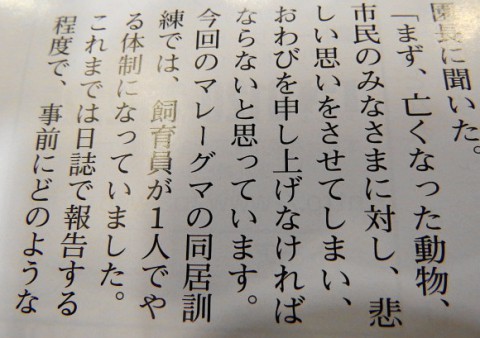 園長に聞いた。
「まず、亡くなった動物、
市民のみなさまに対し、悲
しい思いをさせてしまい、
おわびを申し上げなければ
ならないと思っています。
今回のマレーグマの同居訓
練では、飼育員が1人でや
る体制になっていました。
これまでは日誌で報告する
程度で、事前にどのような